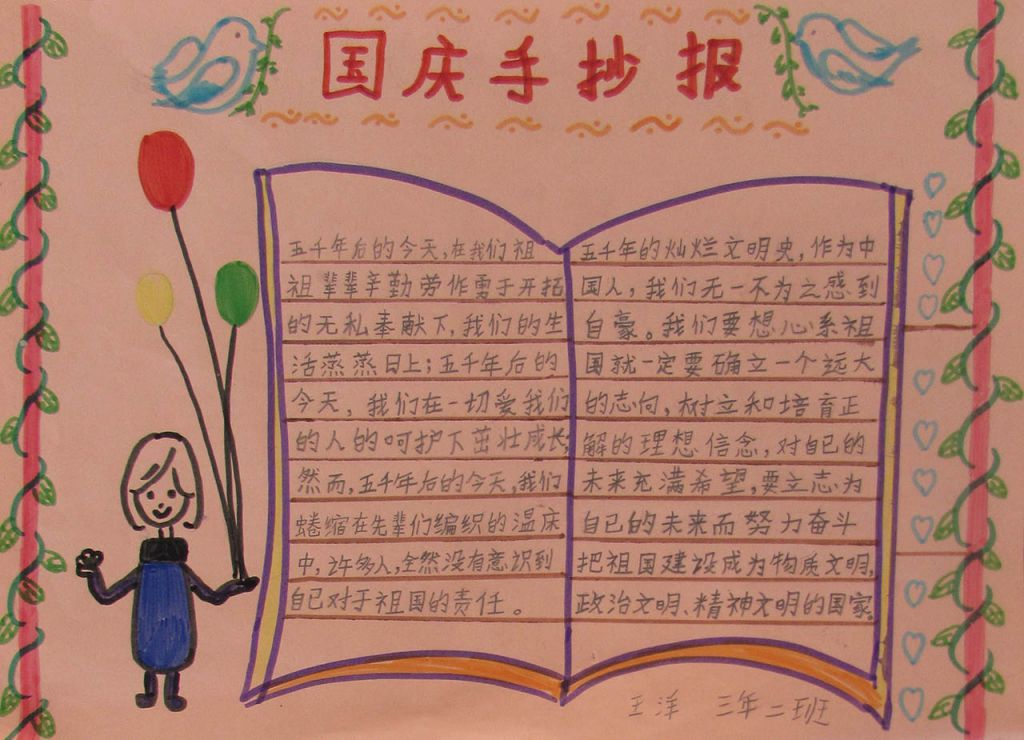 国庆手抄报
五千年后的今天,在我们祖
祖辈辈辛勤劳作勇于开拓
的无私奉献下,我们的生
活蒸蒸日上;五千年后的
今天,我们在一切爱我们
的人的呵护下茁壮成长;
然而,五千年后的今天,我们
蜷缩在先辈们编织的温床
中,许多人,全然没有意识到
自己对于祖国的责任。
五千年的灿烂文明史,作为中
国人,我们无一不为之感到
自豪。我们要想心系祖
国就一定要确立一个远大
的志向,树立和培育正
解的理想信念,对自己的
未来充满希望,要立志为
自己的未来而努力奋斗
把祖国建设成为物质文明,
政治文明、精神文明的国家。
王洋 三年二班